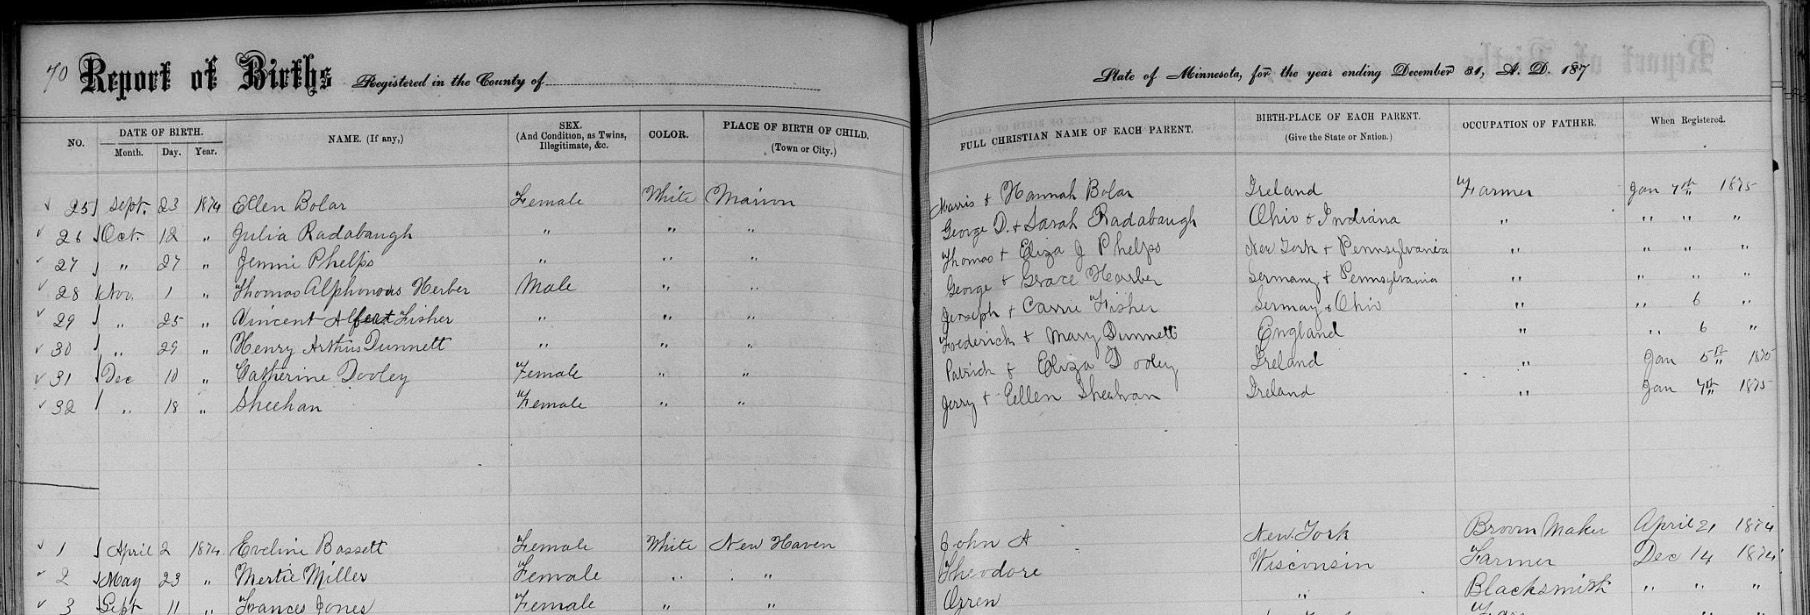 70 Report of Births Registered in the County of State of Minnesota, for the year ending December 31, A. D. 187
NO. DATE OF BIRTH. Month. Day. Year. NAME. (If any,) SEX. (And Condition, as Twins, Illegitimate, &c. COLOR. PLACE OF BIRTH OF CHILD, (Town or City.) FULL CHRISTIAN NAME OF EACH PARENT. BIRTH-PLACE OF EACH PARENT. (Give the State or Nation.) OCCUPATION OF FATHER. When Registered.
25 Sept. 23 1874 Ellen Bolar Female White Marion Morris + Hannah Bolar Ireland Farmer Jan 7th 1875
26 Oct. 12 " Julia Radabaugh " " " George D. + Sarah Radabaugh Ohio & Indiana " " " "
27 " 27 " Jennie Phelps " " " Thomas + Eliza J Phelps New York + Pennsylvania " " " "
28 Nov. 1 " Thomas Alphonous Herber Male " " George + Grace Herber Germany + Pennsylvania " " " "
29 " 25 " Vincent Albert Fisher " " " Joseph + Carrie Fisher Germay & Ohio " " 6 "
30 " 29 " Henry Arthur Dunnett " " " Frederick + Mary Dunnett England " " 6 "
31 Dec 10 " Catherine Dooley Female " " Patrick & Eliza Dooley Ireland " Jan 5th 1875
32 " 18 " Sheehan Female " " Jerry + Ellen Sheehan Ireland " Jan 7th 1875
1 April 2 1874 Eveline Bassett Female White New Haven John A New York Broom Maker April 21 1874
2 May 23 " Mertie Miller Female " " Theodore Wisconsin Farmer Dec 14 1874
3 Sept 11 " Frances Jones Female " " Orren " Blacksmith " " "